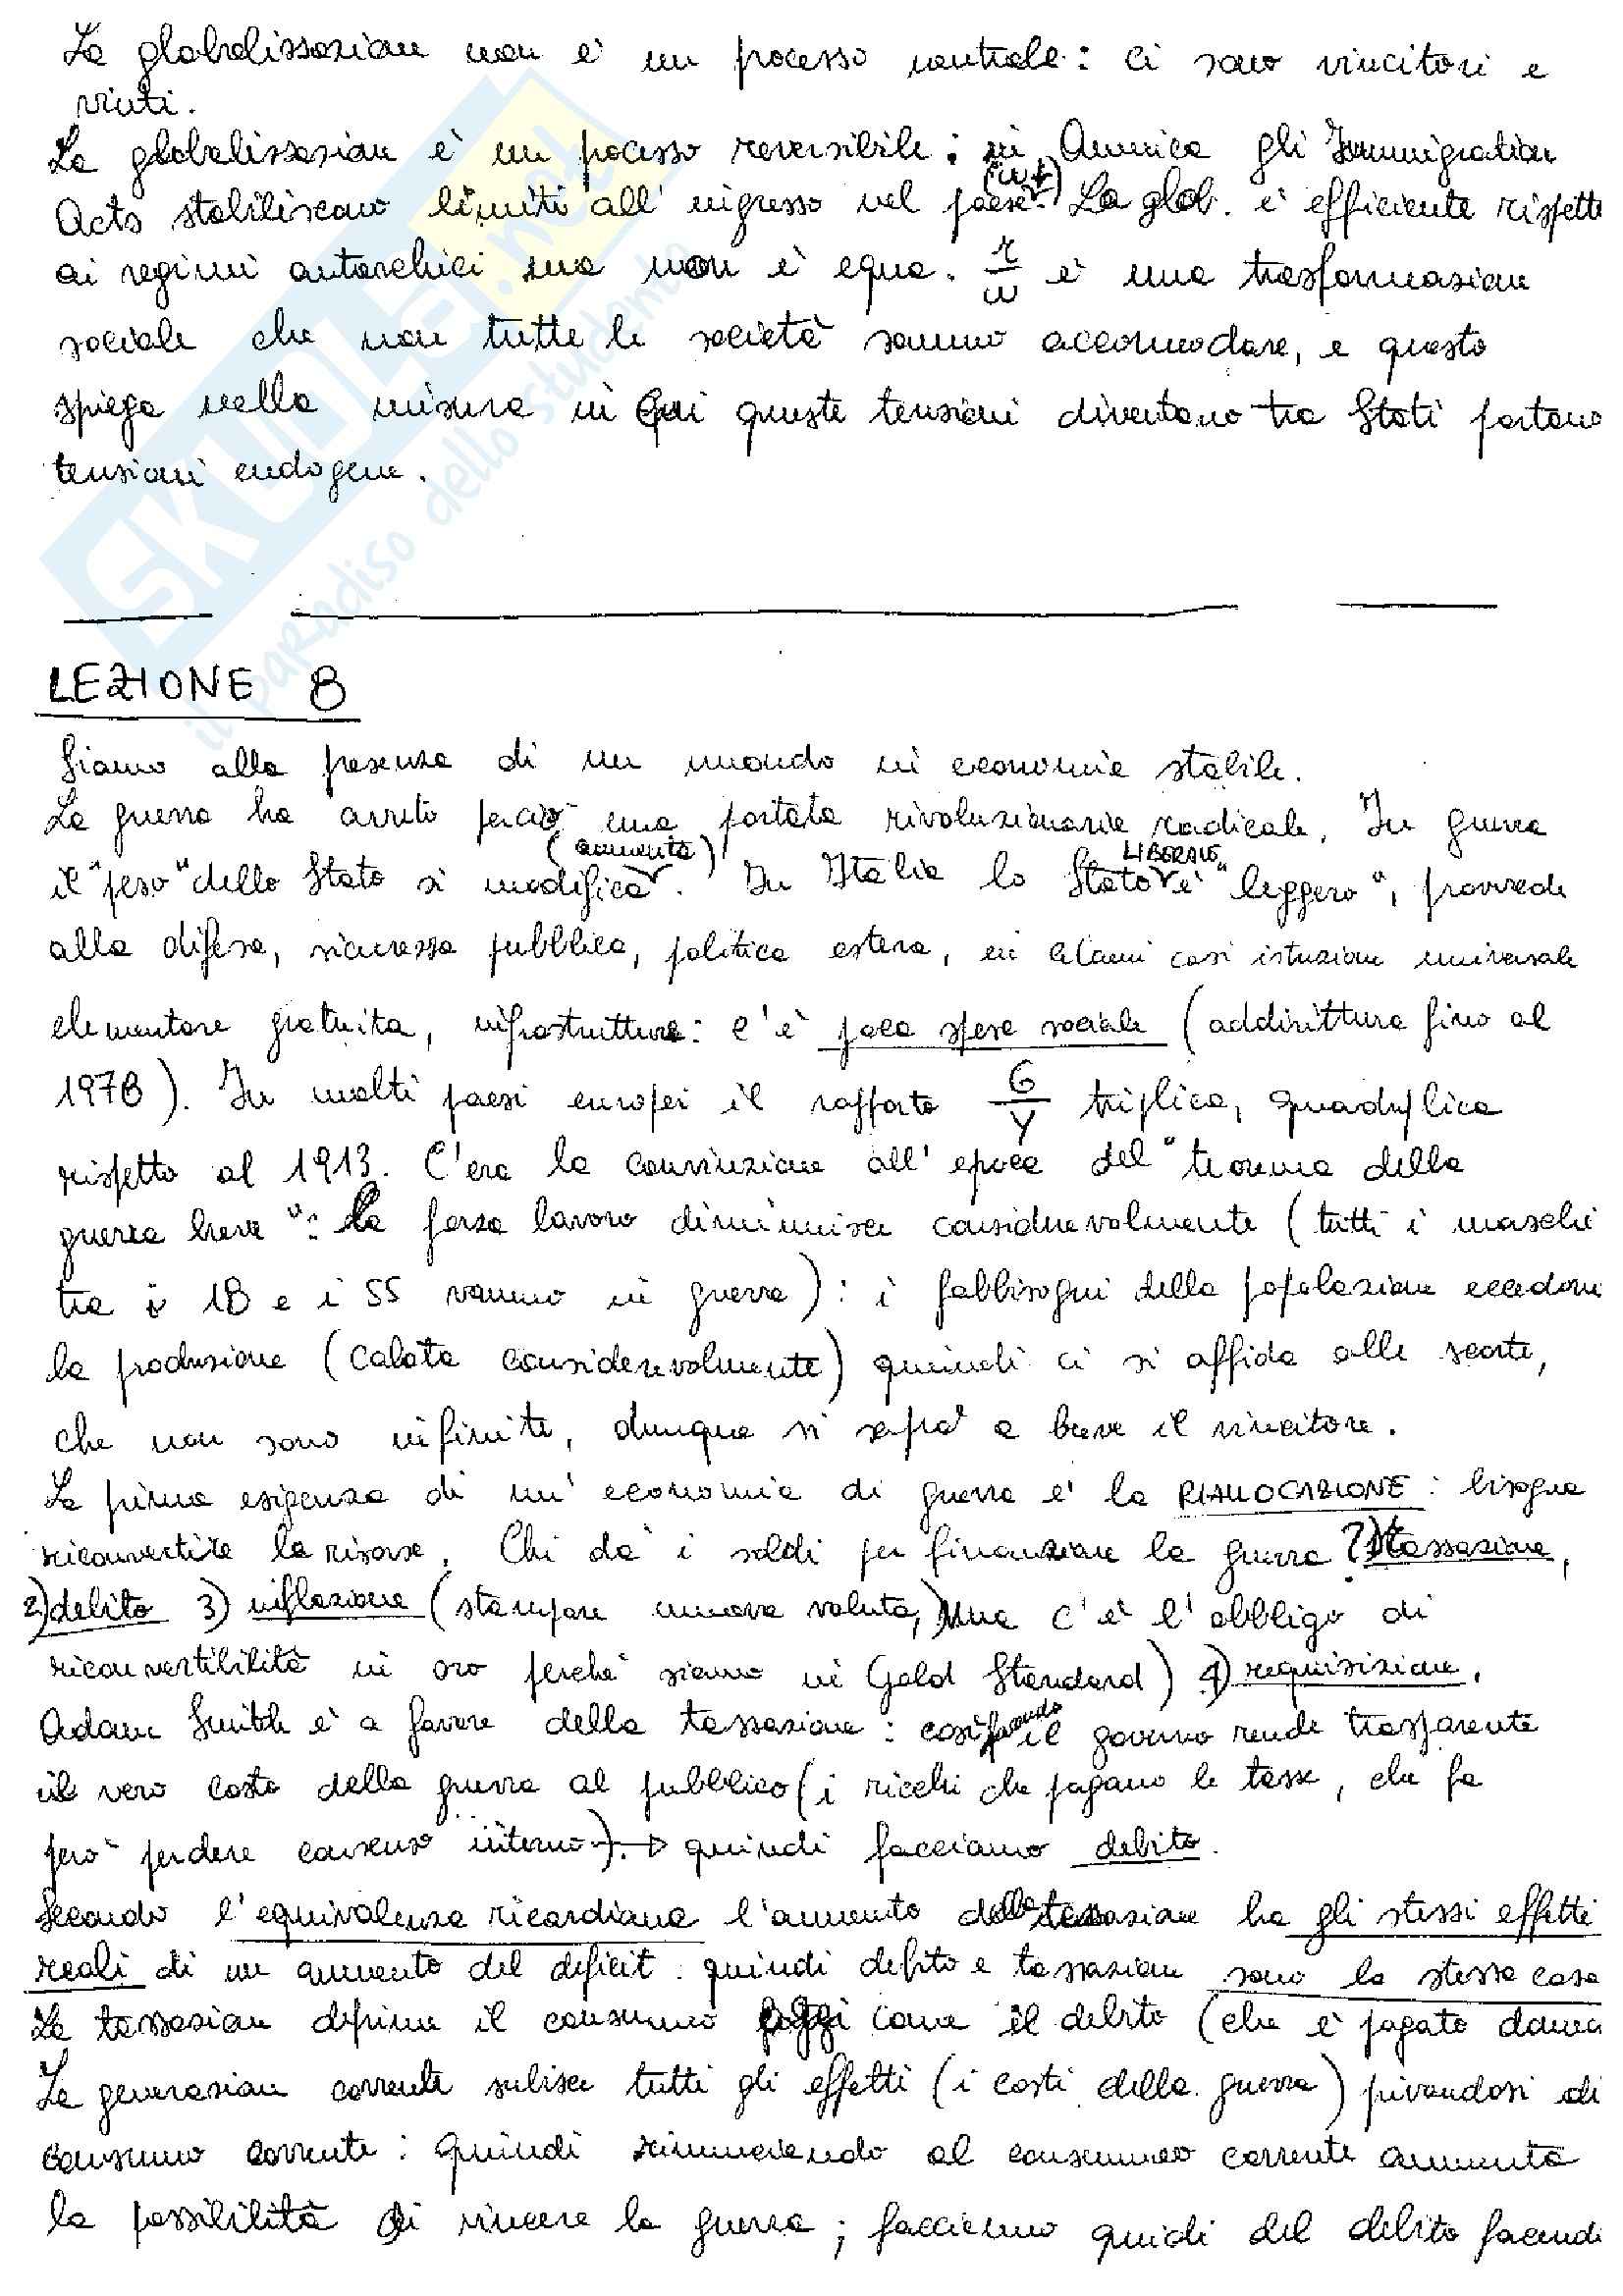 La globalizzazione non è un processo neutrale: ci sono vincitori e
vinti.
La globalizzazione è un processo reversibile: in America gli Immigration
Acts stabiliscono limiti all'ingresso nel paese (w↑). La glob. è efficiente rispetto
ai regimi autarchici ma non è equa. r/w è una trasformazione
sociale che non tutte le società sanno accomodare, e questo
spiega nella misura in cui queste tensioni diventano tra Stati portano
tensioni endogene.
LEZIONE 8
Siamo alla presenza di un mondo in economia stabile.
La guerra ha avuto perciò una portata rivoluzionaria radicale. In guerra
il "peso" dello Stato si modifica (aumenta). In Italia lo Stato LIBERALE è "leggero", provvede
alla difesa, sicurezza pubblica, politica estera, in alcuni casi istruzione universale
elementare gratuita, infrastrutture: c'è poca spesa sociale (addirittura fino al
1978). In molti paesi europei il rapporto G/Y triplica, quadruplica
rispetto al 1913. C'era la convinzione all'epoca del "teorema della
guerra breve": la forza lavoro diminuisce considerevolmente (tutti i maschi
tra i 18 e i 55 vanno in guerra): i fabbisogni della popolazione eccedono
la produzione (calata considerevolmente) quindi ci si affida alle scorte,
che non sono infinite, dunque si saprà a breve il vincitore.
La prima esigenza di un'economia di guerra è la RIALLOCAZIONE: bisogna
riconvertire le risorse. Chi dà i soldi per finanziare la guerra? 1) tassazione,
2) debito 3) inflazione (stampare nuova valuta, ma c'è l'obbligo di
riconvertibilità in oro perché siamo in Gold Standard) 4) requisizione.
Adam Smith è a favore della tassazione: così facendo il governo rende trasparente
il vero costo della guerra al pubblico (i ricchi che pagano le tasse, che fa
però perdere consenso interno). → quindi facciamo debito.
Secondo l'equivalenza ricardiana l'aumento della tassazione ha gli stessi effetti
reali di un aumento del deficit: quindi debito e tassazione sono la stessa cosa
La tassazione deprime il consumo oggi come il debito (che è pagato
La generazione corrente subisce tutti gli effetti (i costi della guerra) privandosi di
consumo corrente: quindi rinunciando al consumo corrente aumenta
la possibilità di vincere la guerra; facciamo quidi del debito facendi
SKUOLA.net
il paradiso dello studente